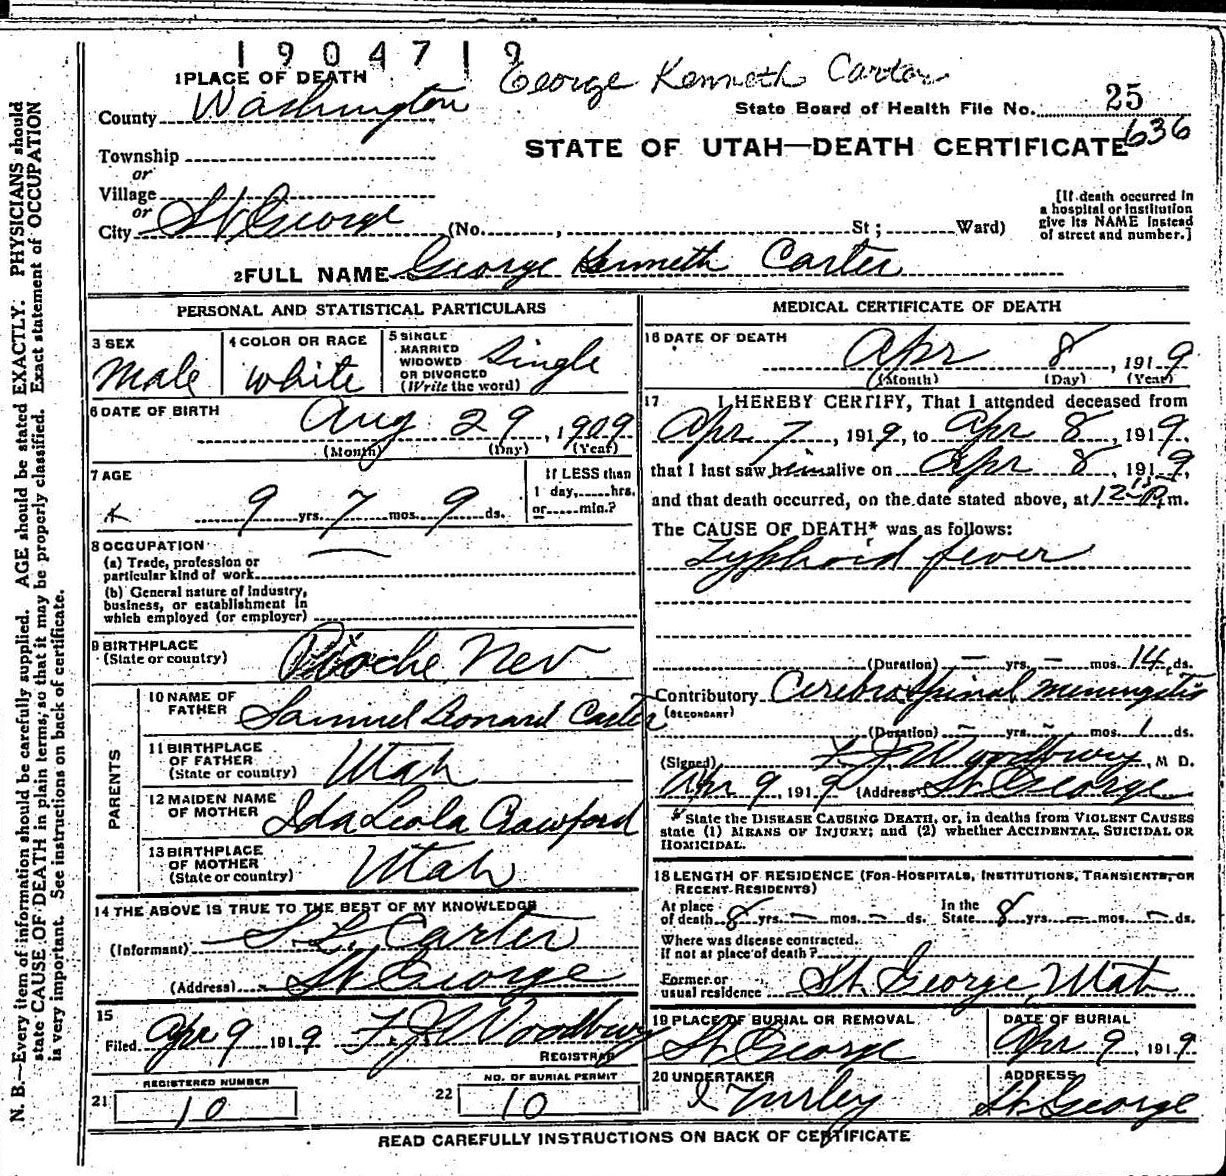 1904719
George Kenneth Carter
1 PLACE OF DEATH
County Washington
State Board of Health File No. 25
636
STATE OF UTAH—DEATH CERTIFICATE
Township
or
Village
or
City St. George (No. , St ; Ward)
[If death occurred in
a hospital or institution
give its NAME instead
of street and number.]
2 FULL NAME George Kenneth Carter
PERSONAL AND STATISTICAL PARTICULARS
3 SEX
Male
4 COLOR OR RACE
White
5 SINGLE
MARRIED
WIDOWED
OR DIVORCED
(Write the word)
Single
6 DATE OF BIRTH
Aug 29, 1909
(Month) (Day) (Year)
7 AGE
9 yrs. 7 mos. 9 ds.
If LESS than
1 day, hrs.
or min.?
8 OCCUPATION
(a) Trade, profession or
particular kind of work
(b) General nature of Industry,
business, or establishment in
which employed (or employer)
9 BIRTHPLACE
(State or country)
Pioche Nev
PARENTS
10 NAME OF
FATHER
Samuel Leonard Carter
11 BIRTHPLACE
OF FATHER
(State or country)
Utah
12 MAIDEN NAME
OF MOTHER
Ida Leola Crawford
13 BIRTHPLACE
OF MOTHER
(State or country)
Utah
14 THE ABOVE IS TRUE TO THE BEST OF MY KNOWLEDGE
(Informant) S. L. Carter
(Address) St George
15
Filed Apr 9 1919 F. J. Woodbury
REGISTRAR
REGISTERED NUMBER
21 10
NO. OF BURIAL PERMIT
22 10
MEDICAL CERTIFICATE OF DEATH
16 DATE OF DEATH
Apr 8, 1919
(Month) (Day) (Year)
17 I HEREBY CERTIFY, That I attended deceased from
Apr 7, 1919, to Apr 8, 1919,
that I last saw him alive on Apr 8, 1919
and that death occurred, on the date stated above, at 12 m.
The CAUSE OF DEATH* was as follows:
Typhoid fever
(Duration) — yrs. — mos. 14 ds.
Contributory Cerebro Spinal meningitis
(SECONDARY)
(Duration) — yrs. — mos. 1 ds.
(Signed) F. J. Woodbury, M D.
Apr 9, 1919 (Address) St George
* State the DISEASE CAUSING DEATH, or, in deaths from VIOLENT CAUSES
state (1) MEANS OF INJURY; and (2) whether ACCIDENTAL, SUICIDAL OR
HOMICIDAL.
18 LENGTH OF RESIDENCE (FOR HOSPITALS, INSTITUTIONS, TRANSIENTS, OR
RECENT RESIDENTS)
At place
of death 8 yrs. — mos. — ds.
In the
State 8 yrs. — mos. — ds.
Where was disease contracted.
If not at place of death?
Former or
usual residence St. George Utah
19 PLACE OF BURIAL OR REMOVAL
St George
DATE OF BURIAL
Apr 9, 1919
20 UNDERTAKER
Turley
ADDRESS
St George
READ CAREFULLY INSTRUCTIONS ON BACK OF CERTIFICATE
N. B.—Every item of information should be carefully supplied. AGE should be stated EXACTLY. PHYSICIANS should
state CAUSE OF DEATH in plain terms, so that it may be properly classified. Exact statement of OCCUPATION
is very important. See instructions on back of certificate.